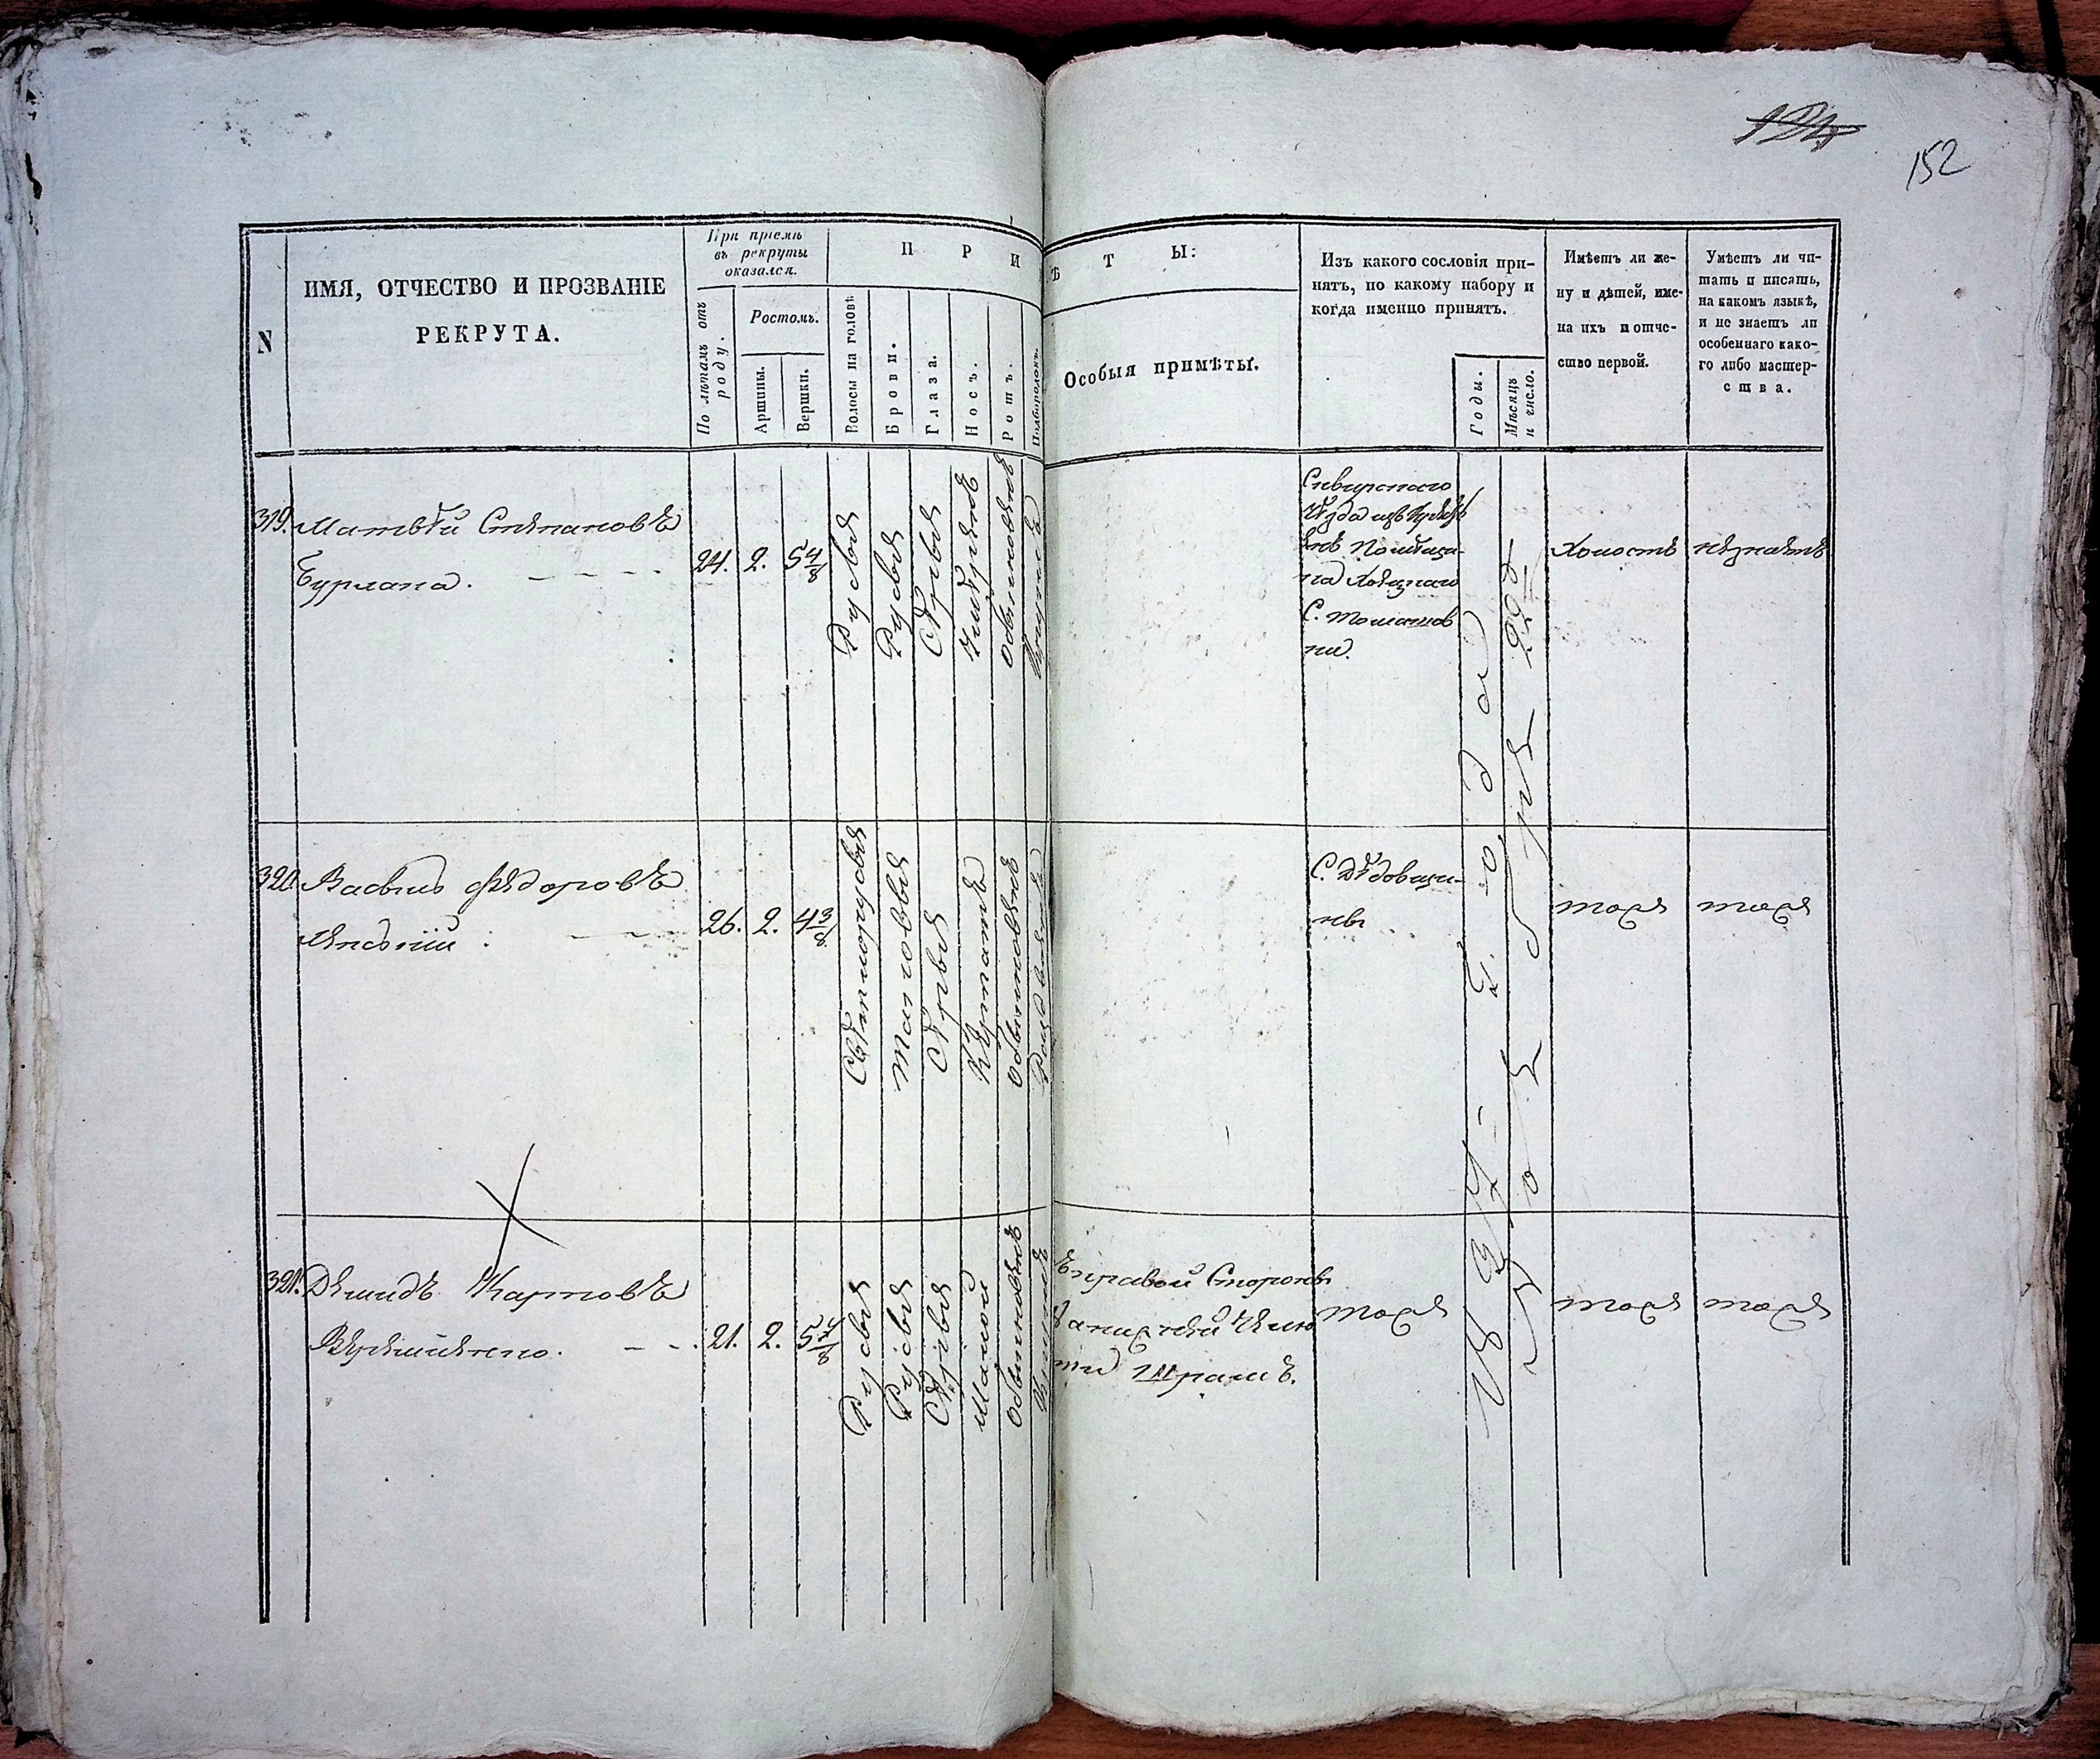 124
152
N
ИМЯ, ОТЧЕСТВО И ПРОЗВАНІЕ
РЕКРУТА.
При пріемѣ
въ рекруты
оказался.
По лѣтамъ отъ
роду.
Ростомъ.
Аршины.
Вершки.
П Р И
Волосы на головѣ
Брови.
Глаза.
Носъ.
Ротъ.
Подбородокъ.
Ѣ Т Ы:
Особыя примѣты.
Изъ какого сословія при-
нятъ, по какому набору и
когда именно принятъ.
Годы.
Мѣсяцъ
и число.
Имѣетъ ли же-
ну и дѣтей, име-
на ихъ и отче-
ство первой.
Умѣетъ ли чи-
тать и писать,
на какомъ языкѣ,
и не знаетъ ли
особеннаго како-
го либо мастер-
ства.
319. Матвѣй Степановъ
Бурлака.
24. 2. 5 4/8
Русыя
Русыя
Сѣрыя
Умѣренъ
обыкновенъ
Круглъ
Сквирскаго
Уѣзда изъ
Помѣщи-
ка
С. Томашов
ки.
Холостъ
незнаетъ
320. Василь Федоровъ
26. 2. 4 3/8
Свѣтлорусыя
таковыя
Сѣрыя
Курпатъ
обыкновенъ
С. Дѣдовщи-
ны
тоже
тоже
321. Демидъ Карповъ
Веремѣенко.
21. 2. 5 4/8
Русыя
Русыя
Сѣрыя
Малой
обыкновенъ
Круглъ
правой Стороны
Шрамъ.
тоже
тоже
тоже
1834 года